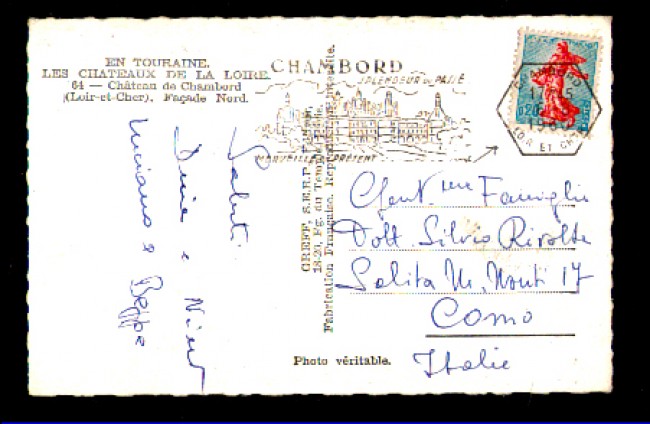 EN TOURAINE.
LES CHATEAUX DE LA LOIRE
64 — Château de Chambord
(Loir-et-Cher). Façade Nord.
CHAMBORD
SPLENDEUR DU PASSÉ
MERVEILLE DU PRÉSENT
CHAMBORD
LOIR ET CHER
0,20
GREFF, S.E.R.P.
18-20, Fg. du Temple
Fabrication Française. Reproduction interdite.
Saluti
Luciano e Beppe
Gent.me Famiglia
Dott. Silvio Rivolta
Salita M. Monti 17
Como
Italie
Photo véritable.